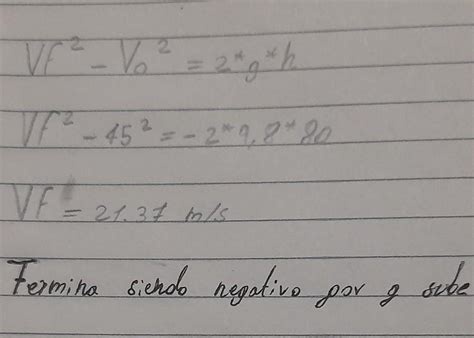 VF² - Vo² = 2*g*h
VF² - 45² = -2*9,8*80
VF = 21.37 m/s
Termina siendo negativo por g sube